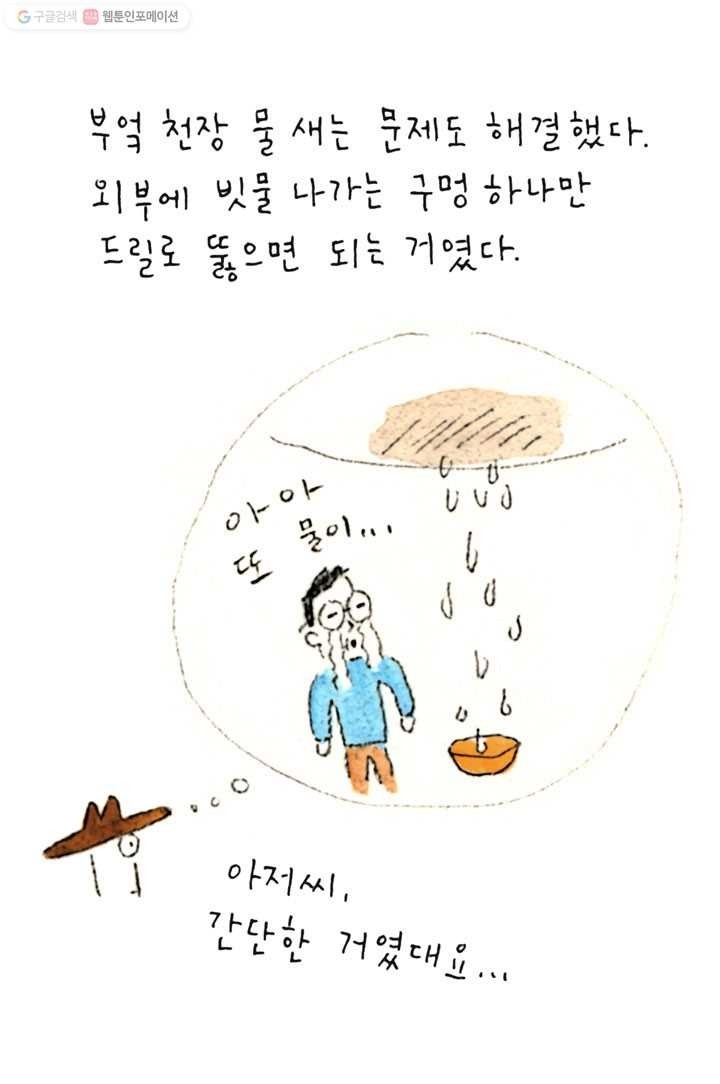 구글검색 웹툰인포메이션
부엌 천장 물 새는 문제도 해결했다.
외부에 빗물 나가는 구멍 하나만
드릴로 뚫으면 되는 거였다.
아아
또 물이...
아저씨,
간단한 거였대요...